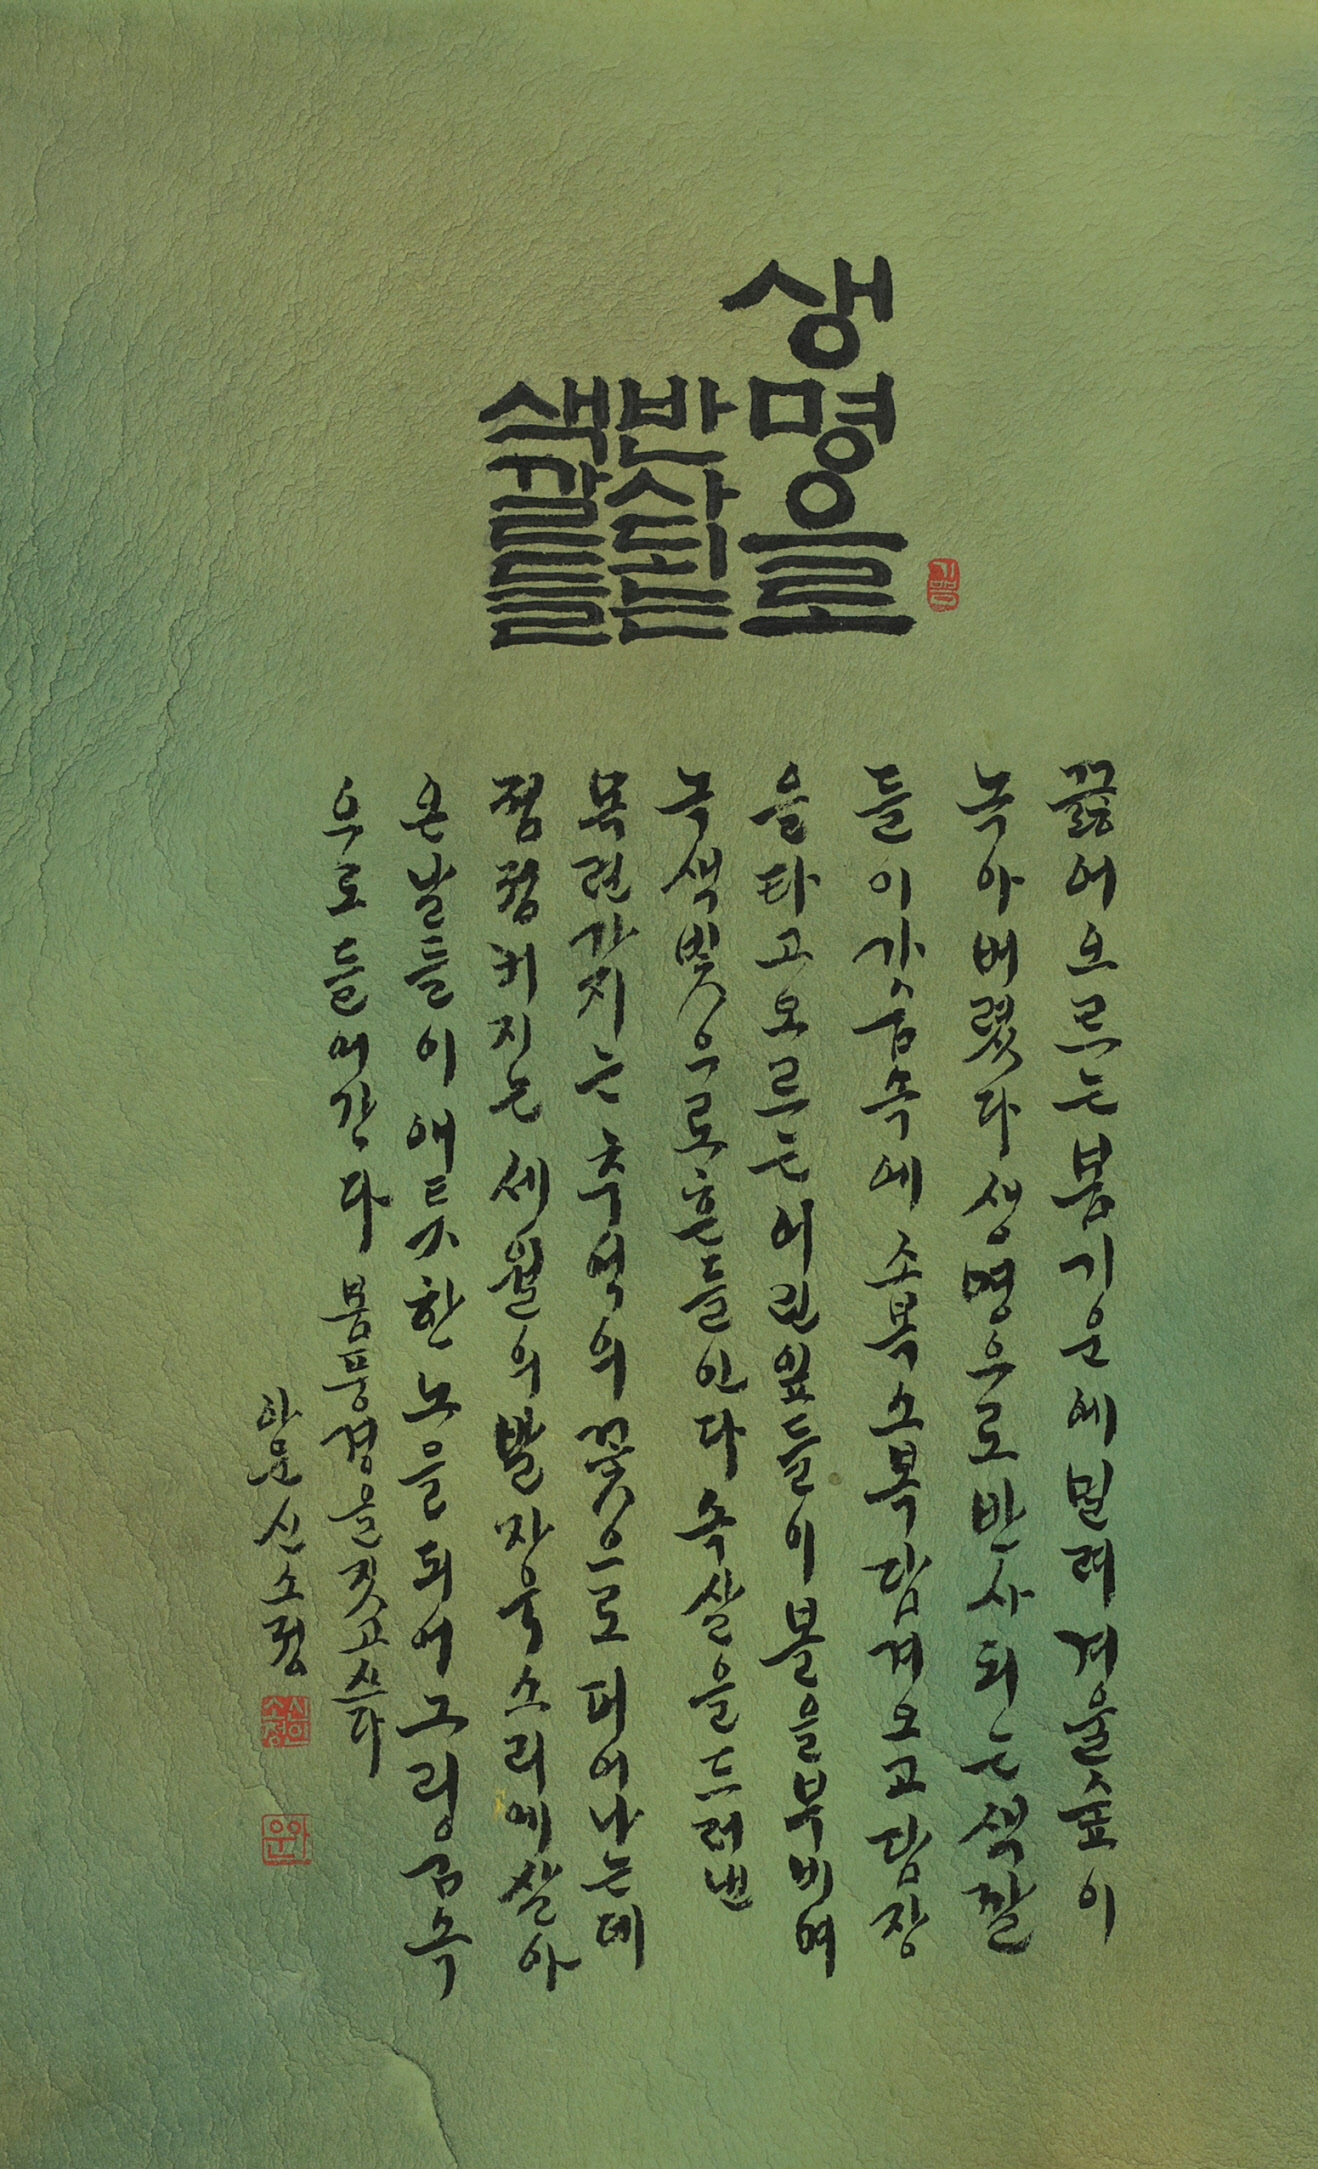 생명으로
반사되는
색깔들
기쁨
끓어오르는봄기운에밀려겨울숲이
녹아버렸다생명으로반사되는색깔
들이가슴속에소복소복담겨오고담장
을타고오르는어린잎들이볼을부비며
녹색빛으로흔들인다속살을드러낸
목련가지는추억의꽃으로피어나는데
점점커지는세월의발자욱소리에살아
온날들이애틋한노을되어그리움속
우로들어간다 봄풍경을짓고쓰다
아운신소정